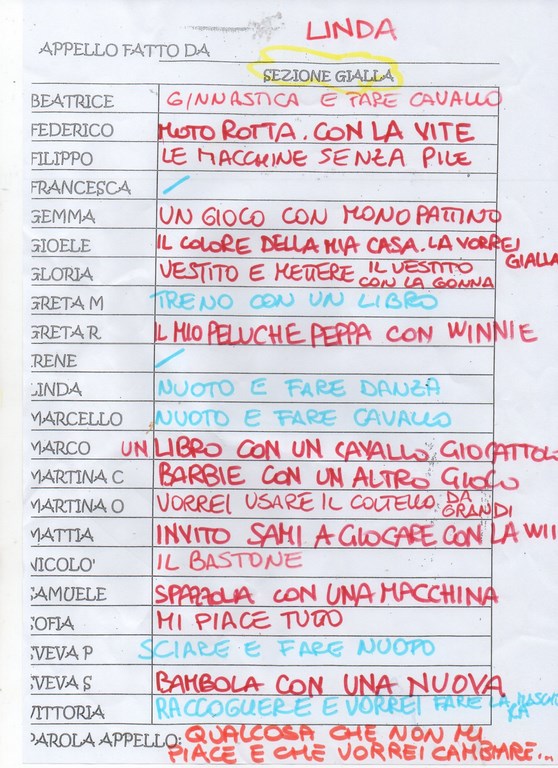 LINDA
APPELLO FATTO DA
SEZIONE GIALLA
BEATRICE GINNASTICA E FARE CAVALLO
FEDERICO MOTO ROTTA. CON LA VITE
FILIPPO LE MACCHINE SENZA PILE
FRANCESCA /
GEMMA UN GIOCO CON MONOPATTINO
GIOELE IL COLORE DELLA MIA CASA. LA VORREI GIALLA
GLORIA VESTITO E METTERE IL VESTITO CON LA GONNA
GRETA M TRENO CON UN LIBRO
GRETA R IL MIO PELUCHE PEPPA CON WINNIE
IRENE /
LINDA NUOTO E FARE DANZA
MARCELLO NUOTO E FARE CAVALLO
MARCO UN LIBRO CON UN CAVALLO GIOCATTOLO
MARTINA C BARBIE CON UN ALTRO GIOCO
MARTINA O VORREI USARE IL COLTELLO DA GRANDI
MATTIA INVITO SAMI A GIOCARE CON LA WII
NICOLO' IL BASTONE
SAMUELE SPAZZOLA CON UNA MACCHINA
SOFIA MI PIACE TUTTO
SVEVA P SCIARE E FARE NUOTO
SVEVA S BAMBOLA CON UNA NUOVA
VITTORIA RACCOGLIERE E VORREI FARE LA
PAROLA APPELLO: QUALCOSA CHE NON MI
PIACE E CHE VORREI CAMBIARE...